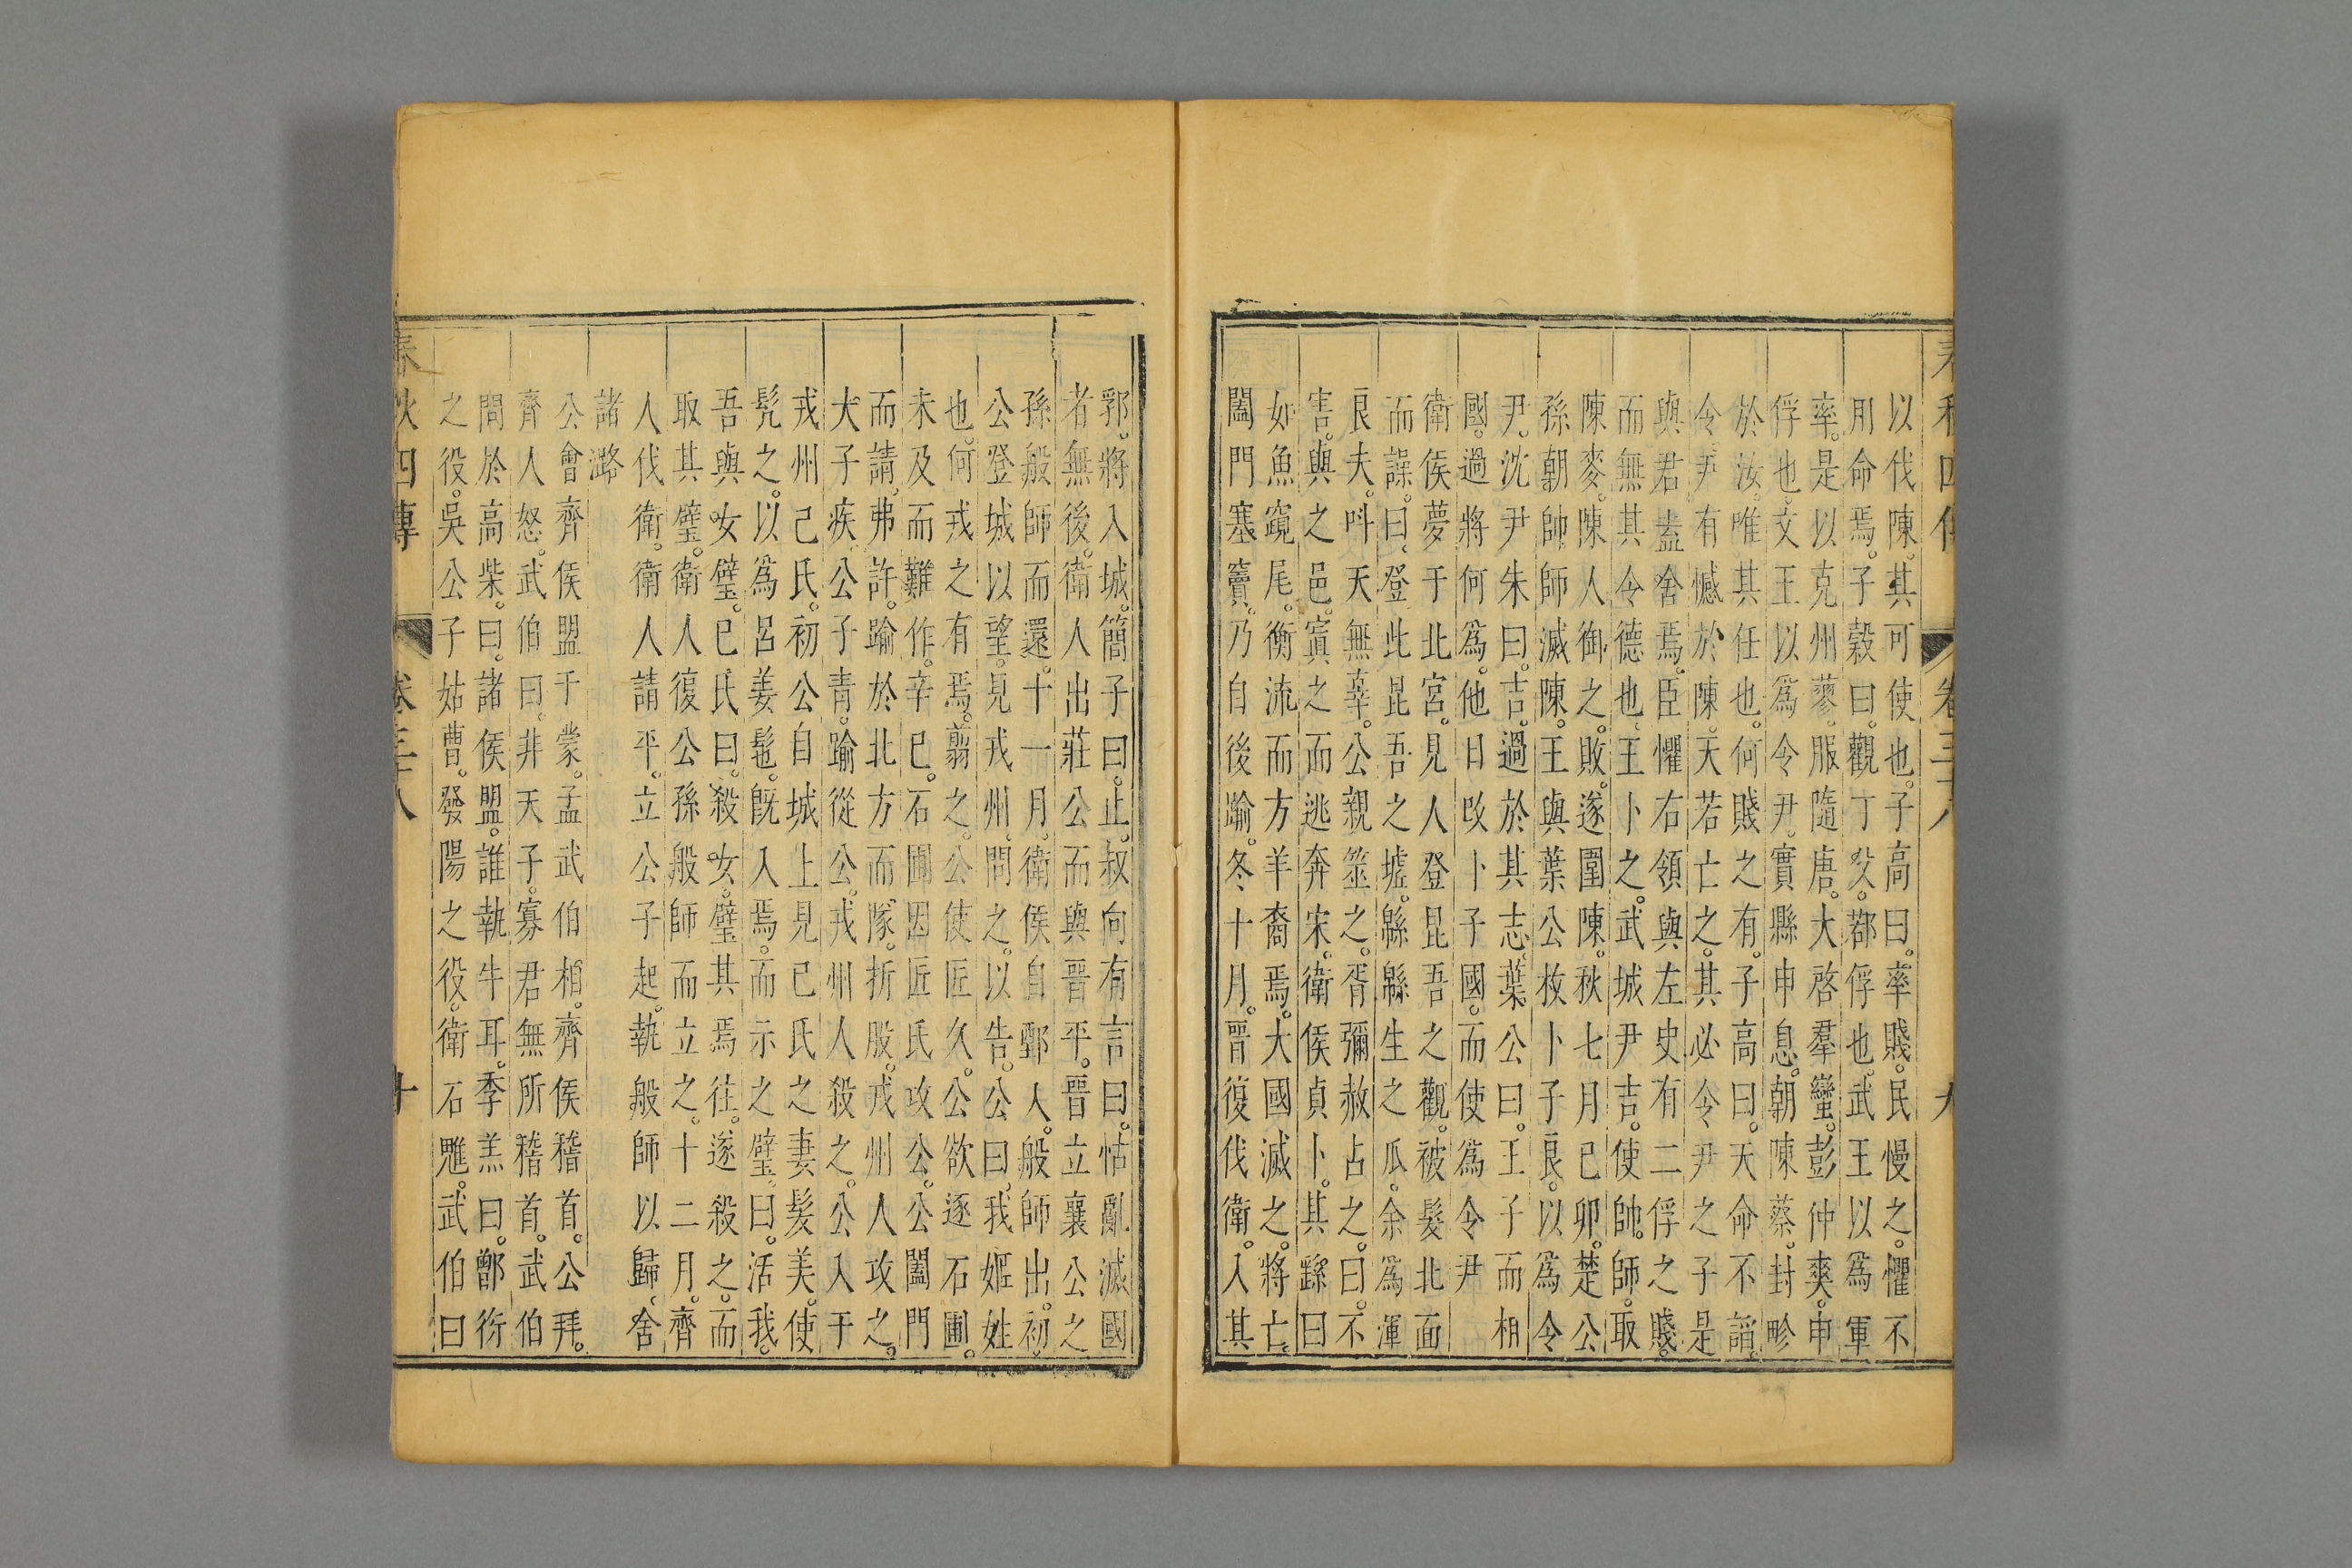 春秋四傳 卷三十八 九
以伐陳。其可使也。子高曰。率賤。民慢之。懼不
用命焉。子穀曰。觀丁父。鄀俘也。武王以爲軍
率。是以克州蓼。服隨唐。大啓羣蠻。彭仲爽。申
俘也。文王以爲令尹。實縣申息。朝陳蔡。封畛
於汝。唯其任也。何賤之有。子高曰。天命不謟。
令尹有憾於陳。天若亡之。其必令尹之子是
與君盍舍焉。臣懼右領與左史有二俘之賤。
而無其令德也。王卜之。武城尹吉。使帥師。取
陳麥。陳人御之。敗。遂圍陳。秋七月己卯。楚公
孫朝帥師滅陳。王與葉公枚卜子良。以爲令
尹。沈尹朱曰。吉。過於其志。葉公曰。王子而相
國。過將何爲。他日改卜子國。而使爲令尹
衛侯夢于北宮。見人登昆吾之觀。被髮北面
而譟。曰。登此昆吾之墟。緜緜生之瓜。余爲渾
良夫。叫天無辜。公親筮之。胥彌赦占之。曰。不
害。與之邑。寘之而逃奔宋。衛侯貞卜。其繇曰
如魚竀尾。衡流而方羊裔焉。大國滅之。將亡。
闔門塞竇。乃自後踰。冬十月。晉復伐衛。入其
郛。將入城。簡子曰。止。叔向有言曰。怙亂滅國
者無後。衛人出莊公而與晉平。晉立襄公之
孫般師而還。十一月。衛侯自鄄入。般師出。初。
公登城以望。見戎州。問之。以告。公曰。我姬姓
也。何戎之有焉。翦之。公使匠久。公欲逐石圃。
未及而難作。辛巳。石圃因匠氏攻公。公闔門
而請。弗許。踰於北方而隊。折股。戎州人攻之。
大子疾公子青。踰從公。戎州人殺之。公入于
戎州己氏。初公自城上見己氏之妻髮美。使
髡之。以爲呂姜髢。旣入焉。而示之璧。曰。活我。
吾與女璧。己氏曰。殺女。璧其焉往。遂殺之。而
取其璧。衛人復公孫般師而立之。十二月。齊
人伐衛。衛人請平。立公子起。執般師以歸。舍
諸潞
公會齊侯盟于蒙。孟武伯相。齊侯稽首。公拜。
齊人怒。武伯曰。非天子。寡君無所稽首。武伯
問於高柴。曰。諸侯盟。誰執牛耳。季羔曰。鄫衍
之役。吳公子姑曹。發陽之役。衛石魋。武伯曰
春秋四傳 卷三十八 十